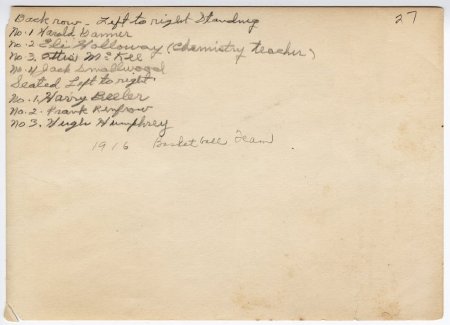 Back row - Left to right Standing
27
No. 1 Harold Banner
No. 2. Eli Holloway (Chemistry teacher)
No 3. McKee
No. 4 Jack Smallwood
Seated Left to right
No. 1, Harry Beeler
No. 2. Frank Renfrow
No 3. Hugh Humphrey
1916 Basketball Team